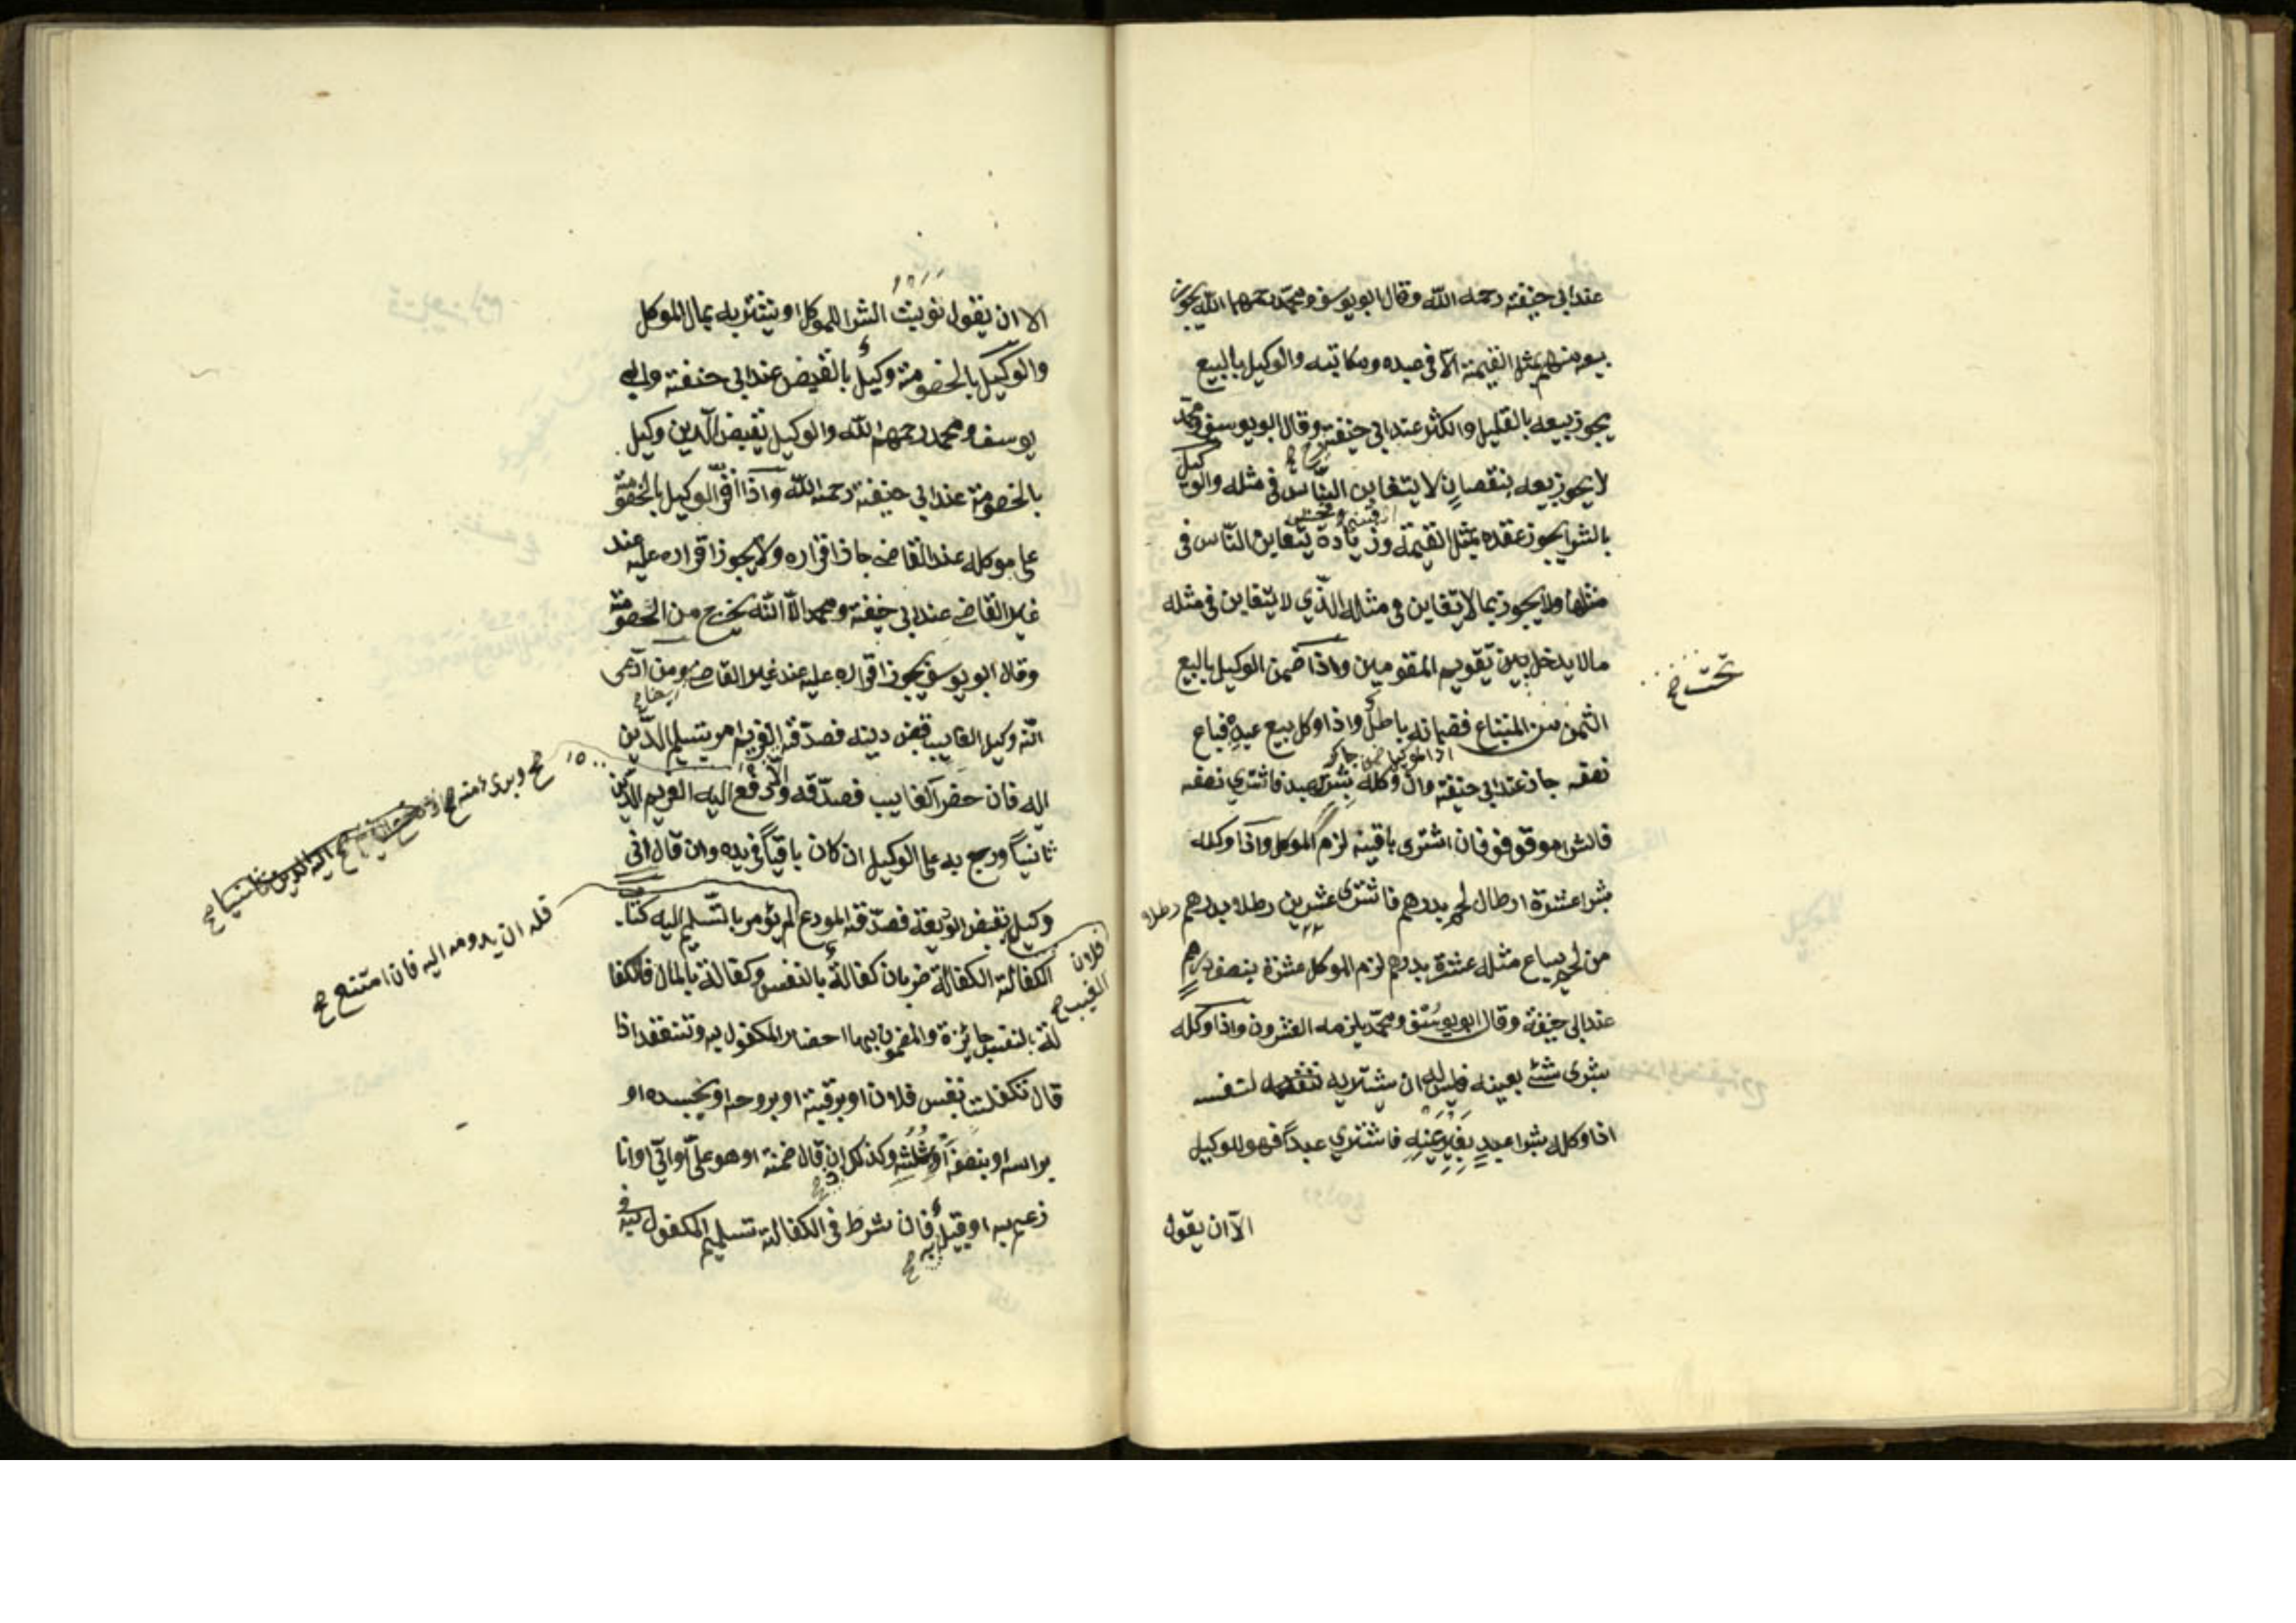 عند ابي حنيفة رحمه الله وقال ابو يوسف ومحمد رحمهما الله يجوز
بيعه منهم بمثل القيمة الا في عبده ومكاتبه والوكيل بالبيع
يجوز بيعه بالقليل والكثير عند ابي حنيفة وقال ابو يوسف ومحمد
لا يجوز بيعه بنقصان لا يتغابن الناس في مثله والوكيل
بالشرا يجوز عقده بمثل القيمة وزيادة يتغابن الناس في
مثلها ولا يجوز بما لا يتغابن في مثله الذي لا يتغابن في مثله
تحت
مالا يدخل بين تقويم المقومين واذا ضمن الوكيل بالبيع
الثمن من المبتاع فضمانه باطل واذا وكل ببيع عبده فباع
نصفه جاز عند ابي حنيفة وان وكله بشرا عبد فاشتري نصفه
فالشرا موقوف فان اشترى باقيه لزم الموكل واذا وكله
بشرا عشرة ارطال لحم بدرهم فاشترى عشرين رطلا بدرهم
من لحم يباع مثله عشرة بدرهم لزم الموكل عشرة بنصف درهم
عند ابي حنيفة وقال ابو يوسف ومحمد يلزمه العشرون واذا وكله
بشرى شئ بعينه فليس له ان يشتريه لنفسه
اذا وكله بشرا عبد بغير عينه فاشتري عبداً فهو للوكيل
الا ان يقول
الا ان يقول نويت الشرا للموكل او يشتريه بمال الموكل
والوكيل بالخصومة وكيل بالقبض عند ابي حنيفة وابي
يوسف ومحمد رحمهم الله والوكيل بقبض الدين وكيل
بالخصومة عند ابي حنيفة رحمه الله واذا اقر الوكيل بالخصومة
على موكله عند القاضي جاز اقراره ولا يجوز اقراره عليه عند
غير القاضي عند ابي حنيفة ومحمد الا انه يخرج من الخصومة
وقال ابو يوسف يجوز اقراره عليه عند غير القاضي ومن ادعى
انه وكيل الغايب قبض دينه فصدقه الغريم امر بتسليم الدين
اليه فان حضر الغايب فصدقه والا دفع اليه الغريم الدين
ثانياً ورجع به على الوكيل ان كان باقياً في يده وان قال اني
وكيل بقبض الوديعة فصدقه المودع لم يؤمر بالتسليم اليه كتاب
الكفالة الكفالة ضربان كفالة بالنفس وكفالة بالمال فالكفا
لة بالنفس جائزة والمضمون بها احضار المكفول به وتنعقد اذا
قال تكفلت بنفس فلان او برقبته او بروحه او بجسده او
براسه او بنصفه او بثلثه وكذلك ان قال ضمنته او هو علي او الي او انا
زعيم به او قبيل به فان شرط في الكفالة تسليم المكفول به في
وبرئ منه
اليه الدين ثانيا
قله ان يدفعه اليه فان امتنع
فلان
الغيب